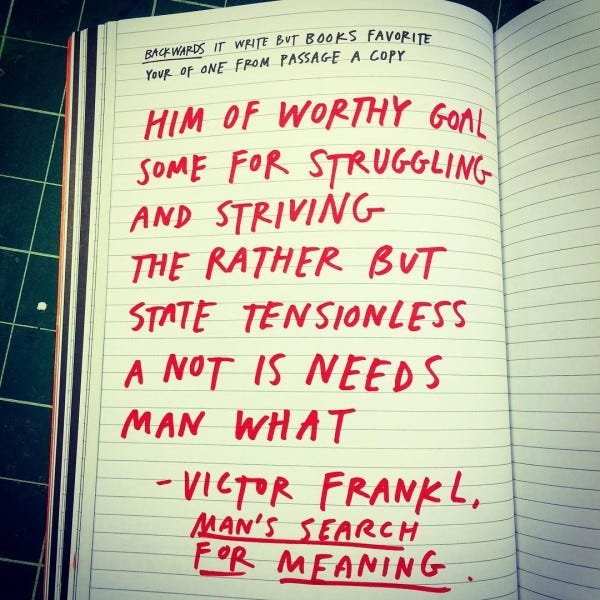 BACKWARDS IT WRITE BUT BOOKS FAVORITE
YOUR OF ONE FROM PASSAGE A COPY
HIM OF WORTHY GOAL
SOME FOR STRUGGLING
AND STRIVING
THE RATHER BUT
STATE TENSIONLESS
A NOT IS NEEDS
MAN WHAT
- VICTOR FRANKL,
MAN'S SEARCH
FOR MEANING.